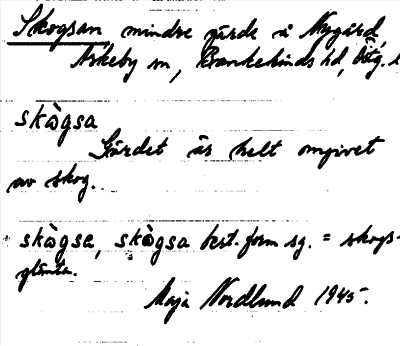 Skogsan, mindre gärde å Nygård,
Askeby sn, Bankekinds hd, Östg. l
skògsa
Gärdet är helt omgivet
av skog.
skògsa, skògsa best. form sg. = skogs-
glänta.
Maja Nordlund 1945.